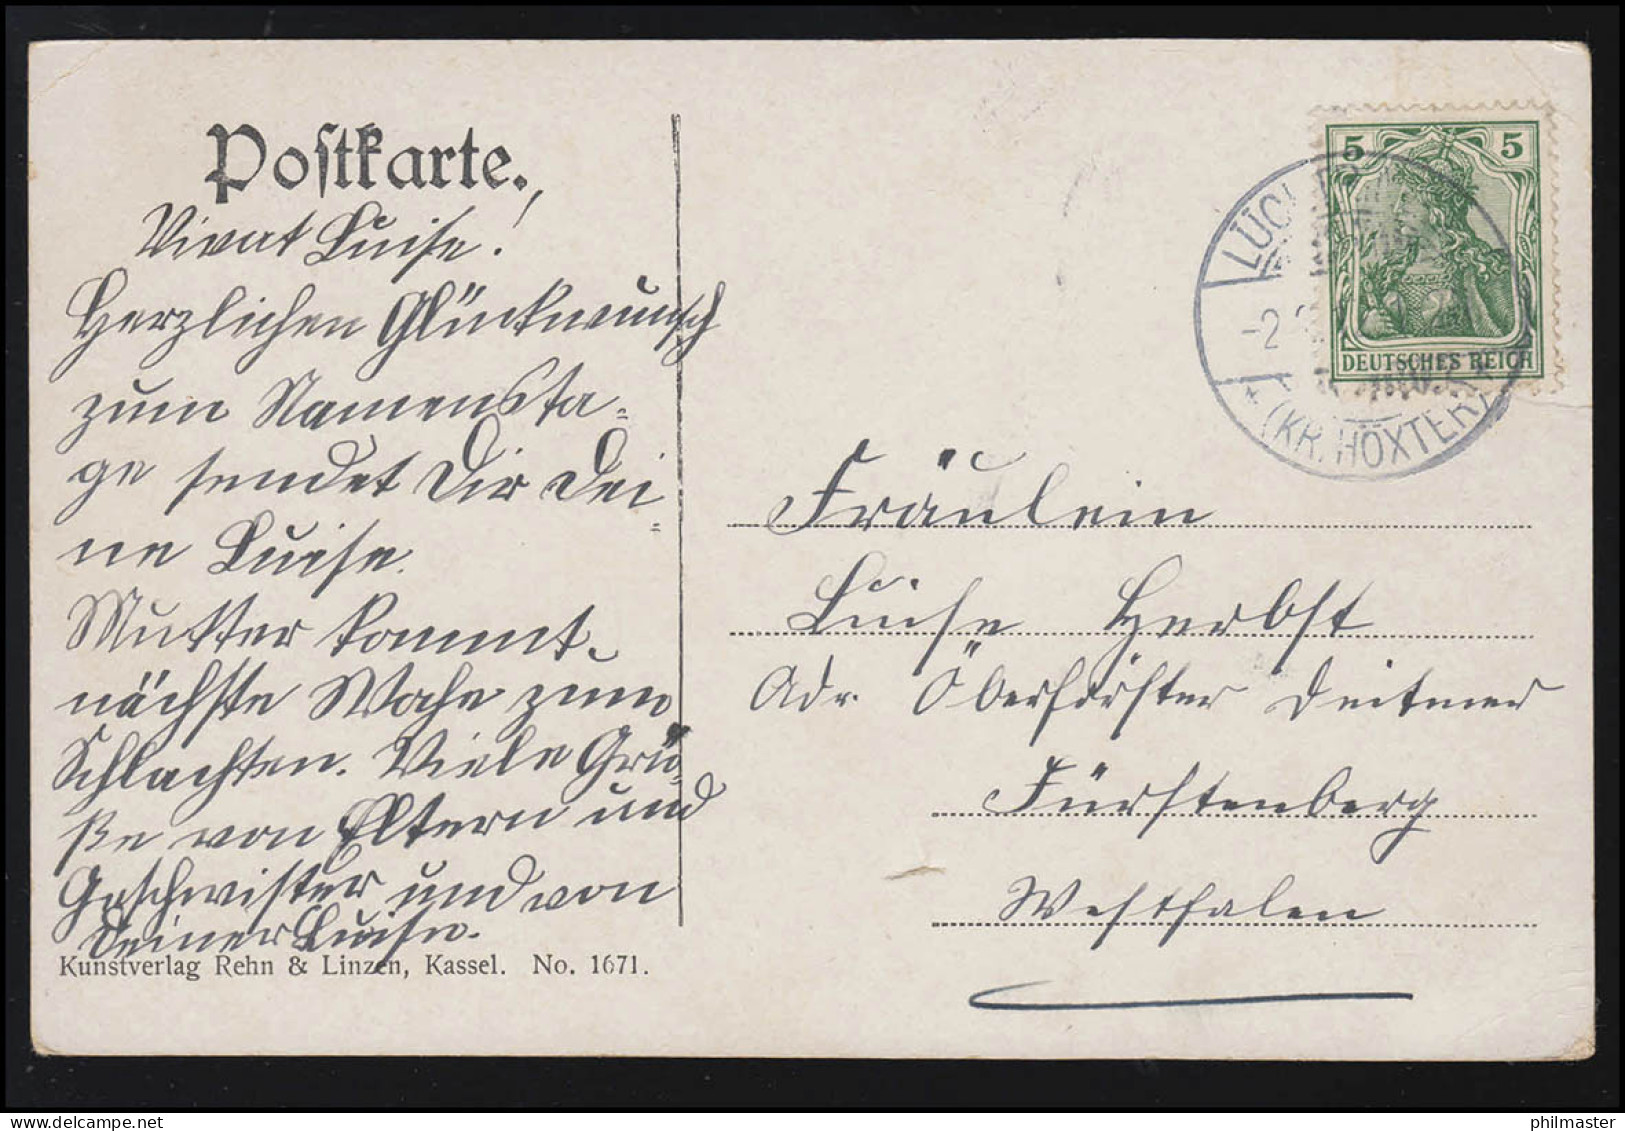 Postkarte.
Vivat Luise!
Herzlichen Glückwunsch
zum Namensta-
ge sendet Dir Dei-
ne Luise.
Mutter kommt
nächste Woche zum
Schlachten. Viele Grü-
ße von Eltern und
Geschwister und von
Deiner Luise.
Kunstverlag Rehn & Linzen, Kassel. No. 1671.
5 5
DEUTSCHES REICH
-2
* (KR. HÖXTER)
Fräulein
Luise Herbst
Adr. Oberförster Deitmer
Fürstenberg
Westfalen
philmaster